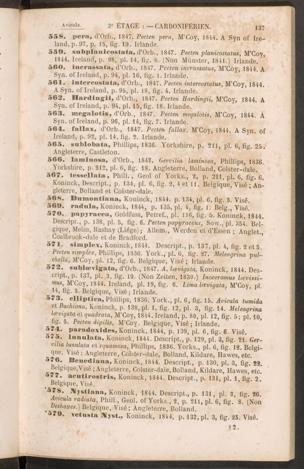 Avicula. 2e ÉTAGE : — CARBONIFÉRIEN. 137
558. pera, d'Orb., 1847. Pecten pera, M'Coy, 1844. A Syn of Ireland, p. 97, p. 15, fig. 19. Irlande.
559. subplanicostata, d'Orb., 1847. Pecten planicostatus, M'Coy,
1844. Ireland, p. 98, pl. 14, fig. 8. (Non Münster, 1841.) Irlande.
560. incrassata, d'Orb., 1847. Pecten incrassatus, M'Coy, 1844. A
Syn. of Ireland, p. 94, pl. 16, fig. 1. Irlande.
561. intercostata, d'Orb., 1847. Pecten intercostatus, M'Coy, 1844.
A Syn. of Ireland, p. 95, pl. 18, fig. 4. Irlande.
562. Hardingii, d'Orb., 1847. Pecten Hardingii, M'Coy, 1844. A
Syn. of Ireland, p. 94, pl. 15, fig. 18. Irlande.
563. megalotis, d'Orb., 1847. Pecten megalotis, M'Coy, 1844. A
Syn. of Ireland, p. 96, pl. 14, fig. 7. Irlande.
564. fallax, d'Orb., 1847. Pecten fallax, M'Coy, 1844. A Syn. of
Ireland, p. 92, pl. 14, fig. 2. Irlande.
565. sublobata, Phillips, 1836. Yorkshire, p. 211, pl. 6, fig. 25.
Angleterre, Castleton.
566. laminosa, d'Orb., 1847. Gervilia laminosa, Phillips, 1836.
Yorkshire, p. 212, pl. 6, fig. 18. Angleterre, Bolland, Colster-dale.
567. tessellata, Phill.; Geol. of Yorks., 2, p. 211, pl. 6, fig. 6.
Koninck, Descript., p. 134, pl. 6, fig. 2, 4 et 11. Belgique, Visé; Angleterre, Bolland et Colster-dale.
568. Dumontiana, Koninck, 1844. p. 134, pl. 6, fig. 3. Visé.
569. radula, Koninck, 1844, p. 135, pl. 4, fig. 1. Belg., Visé.
570. papyracea, Goldfuss, Petref., pl. 116, fig. 5. Koninck, 1844.
Descript., p. 136, pl. 5, fig. 6. Pecten papyraceus, Sow., pl. 354. Belgique, Melin, Rashay (Liége); Allem., Werden et d'Essen; Anglet.,
Coalbrook-dale et de Bradford.
571. simplex, Koninck, 1844. Descript., p. 137, pl. 4, fig. 2 et 5.
Pecten simplex, Phillips, 1836. York., pl. 6, fig. 27. Meleagrina pulchella, M'Coy, pl. 12, fig. 6. Belgique, Visé; Irlande.
572. sublævigata, d'Orb., 1847. A. lævigata, Koninck, 1844. Descript., p. 137, pl. 3, fig. 19. (Non Zeiten, 1830.) Inoceramus lævissimus, M'Coy, 1844. Ireland, pl. 19, fig. 6. Lima lævigata, M'Coy, pl.
14, fig. 5. Belgique, Visé; Irlande.
573. elliptica, Phillips, 1836, York., pl. 6, fig. 15. Avicula tumida
et Buchiana, Koninck, p. 138, pl. 1, fig. 12, pl. 3, fig. 24. Meleagrina
lævigata et quadrata, M'Coy, 1844, Ireland, p. 80, pl. 12, fig. 5; pl. 10,
fig. 5. Pecten depilis, M'Coy. Belgique, Visé; Irlande.
574. paradoxides, Koninck, 1844, p. 129, pl. 6, fig. 6. Visé.
575. lunulata, Koninck, 1844. Descript., p. 129, pl. 3, fig. 21. Gervilia lunulata et squamosa, Phillips, 1836. Yorks., pl. 6, fig. 12. Belgique, Visé; Angleterre, Colster-dale, Bolland, Kildare, Hawes, etc.
576. Benediana, Koninck, 1844. Descript., p. 130, pl. 3, fig. 22.
Belgique, Visé; Angleterre, Colster-dale, Bolland, Kildare, Hawes, etc.
577. acutirostris, Koninck, 1844. Descript., p. 131, pl. 1, fig. 2.
Belgique, Visé.
*578. Nystiana, Koninck, 1844. Descript., p. 131, pl. 3, fig. 26.
Avicula radiata, Phill., Geol. of Yorks., 2, p. 211, pl. 6, fig. 8. (Non
Deshayes.) Belgique, Visé; Angleterre, Bolland.
*579. vetusta Nyst., Koninck, 1844, p. 132, pl. 3, fig. 25. Visé.
12.